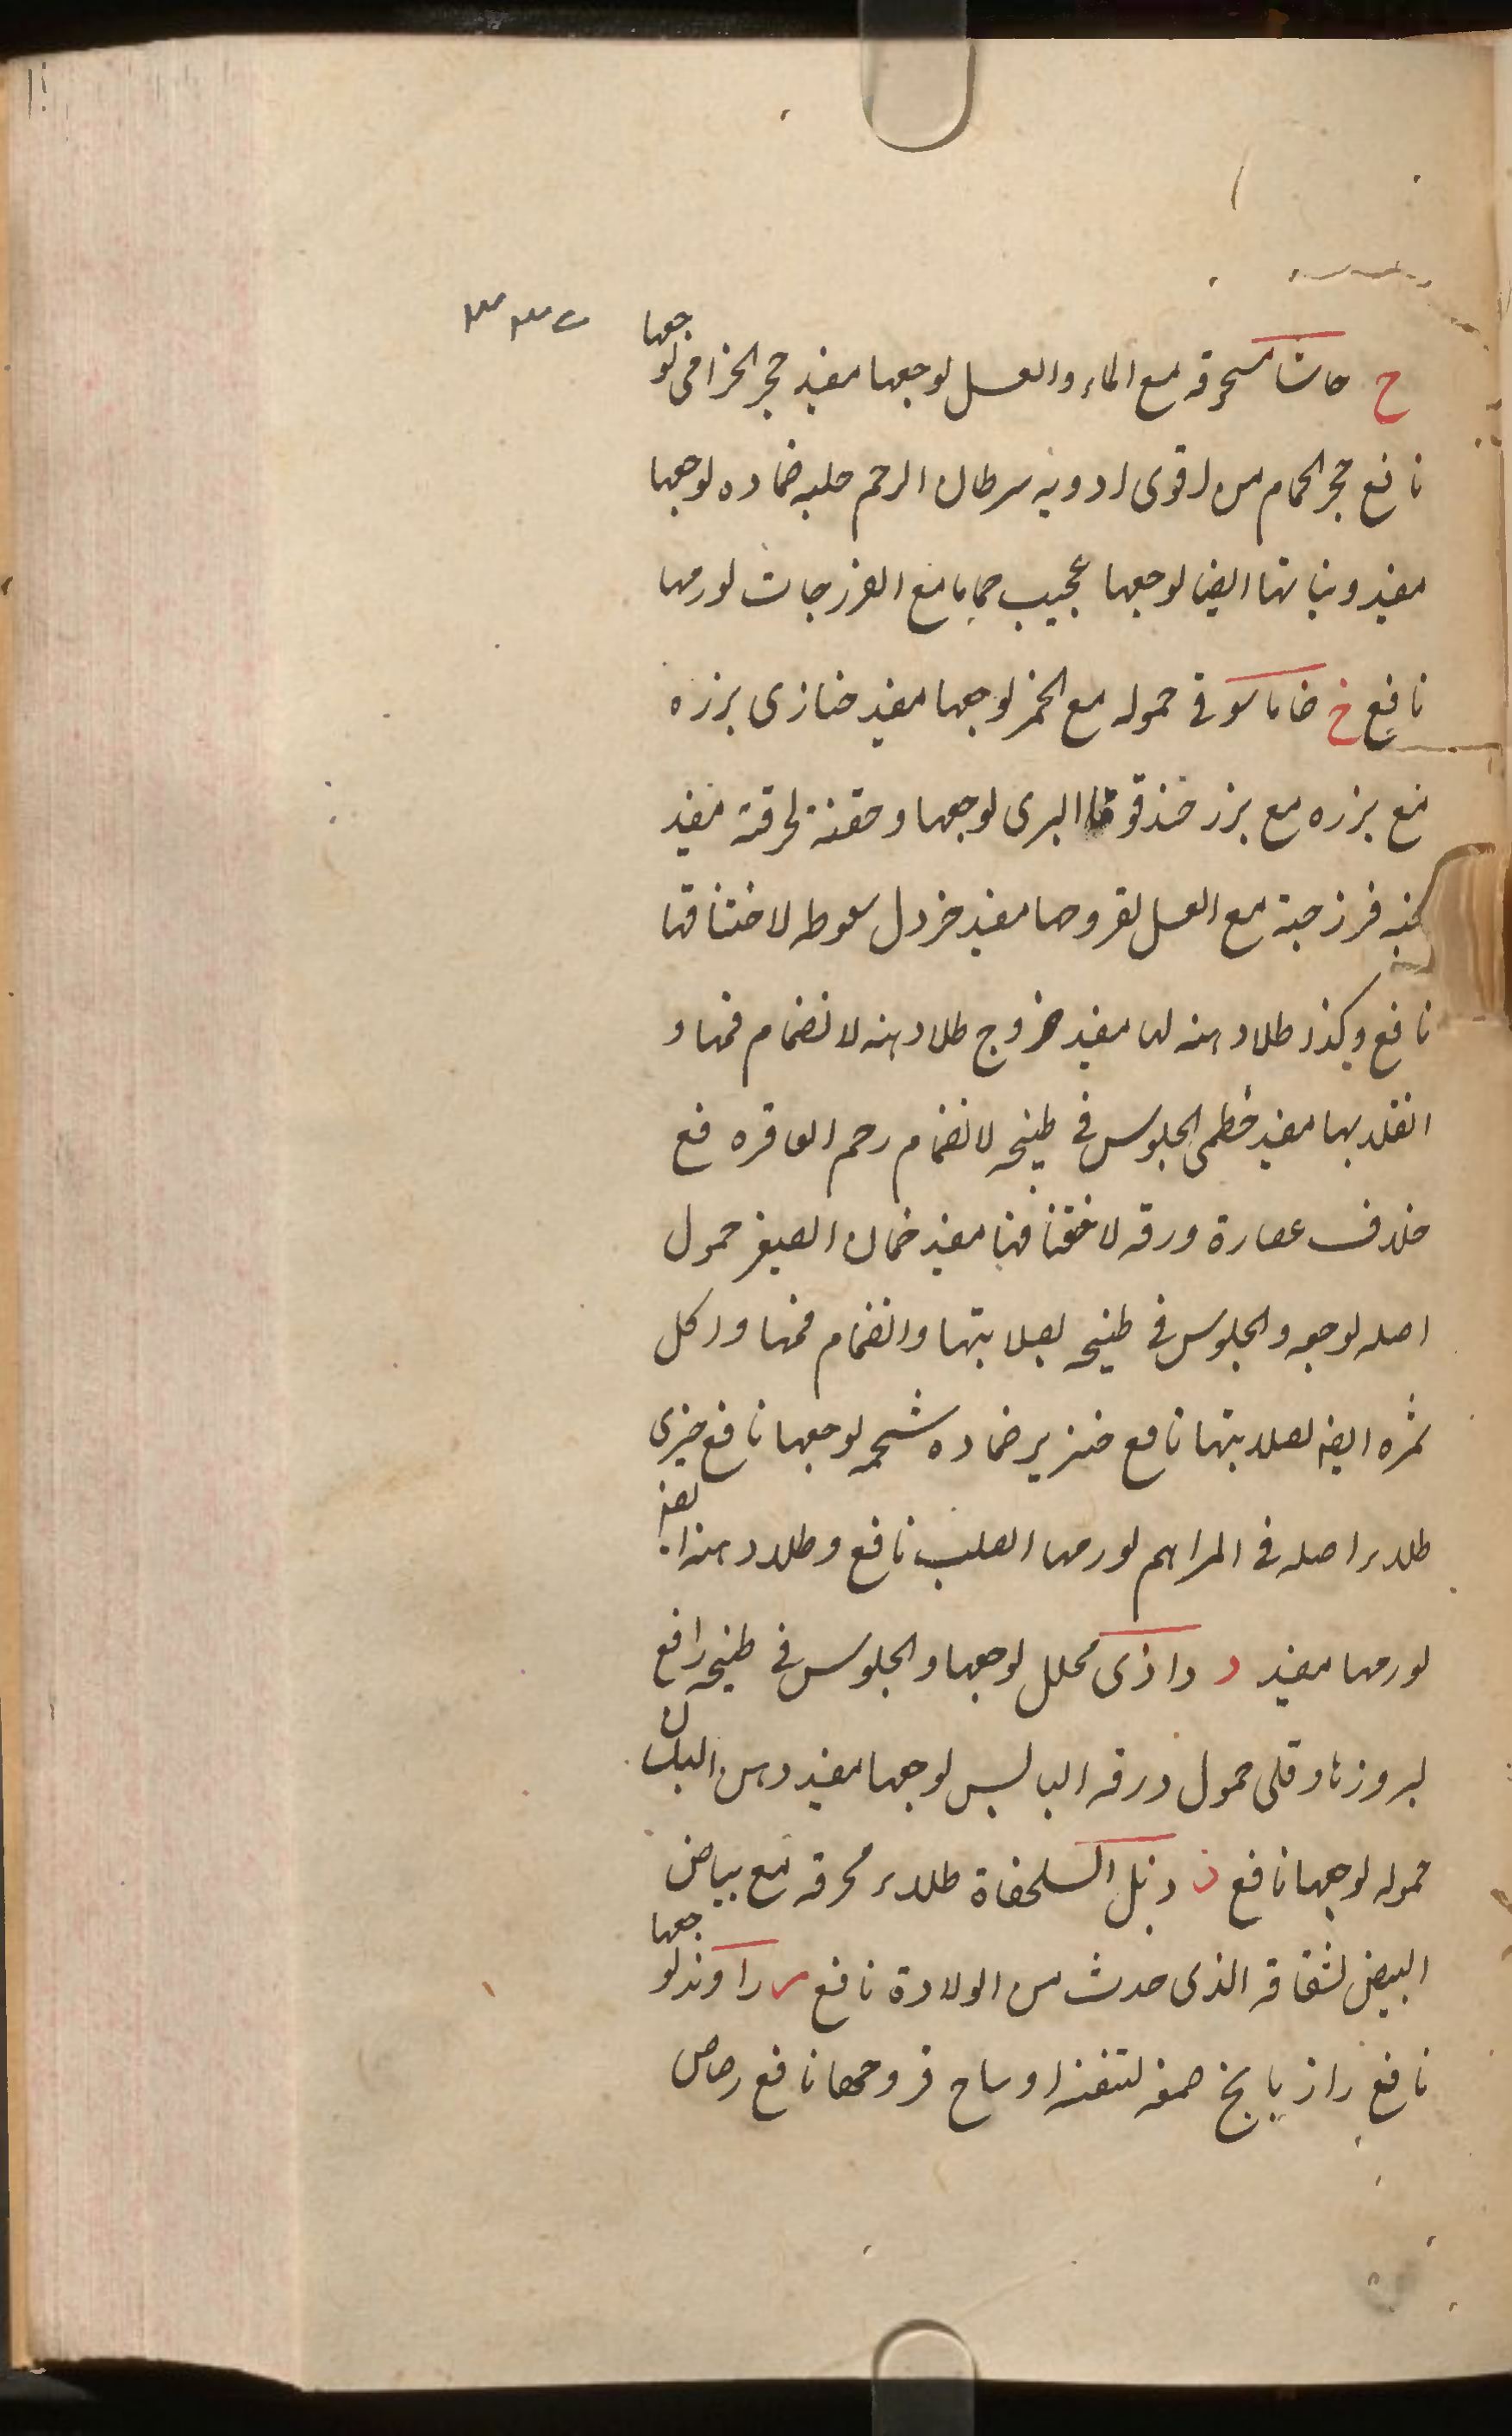 ح حاشا مسحوقه مع الماء والعسل لوجعها مفيد حجر الخزامى لوجعها
نافع حجر الحمام من اقوى ادويه سرطان الرحم حلبه ضماده لوجعها
مفيد ونباتها ايضا لوجعها عجيب حماما مع الفرزجات لورمها
نافع خ حموله مع الخمر لوجعها مفيد خبازى بزره
مع بزره مع بزر البرى لوجعها وحقنة لحرقته مفيد
فرزجة مع العسل لقروحها مفيد خردل سعوطه لاختناقها
نافع وكذا طلا دهنه لها مفيد خروع طلا دهنه لانضمام فمها و
انقلابها مفيد خطمى الجلوس فى طبيخه لانضمام رحم العاقره فع
خلاف عصارة ورقه لاختناقها مفيد خمان الصغير حمول
اصله لوجعه والجلوس فى طبيخه لصلابتها وانضمام فمها واكل
ثمره ايضا لصلابتها نافع خنزير ضماده شحمه لوجعها نافع خيرى
طلاء اصله فى المراهم لورمها الصلب نافع وطلا دهنه ايضا
لورمها مفيد د داذى محلل لوجعها والجلوس فى طبيخه رافع
لبروزها دفلى حمول ورقه اليابس لوجعها مفيد دهن البان
حموله لوجعها نافع ذ ذبل السلحفاة طلاء محرقه مع بياض
البيض لشقاقه الذى حدث من الولادة نافع ر راوند لوجعها
نافع رازيانج صمغه لتنقية اوساخ قروحها نافع رصاص